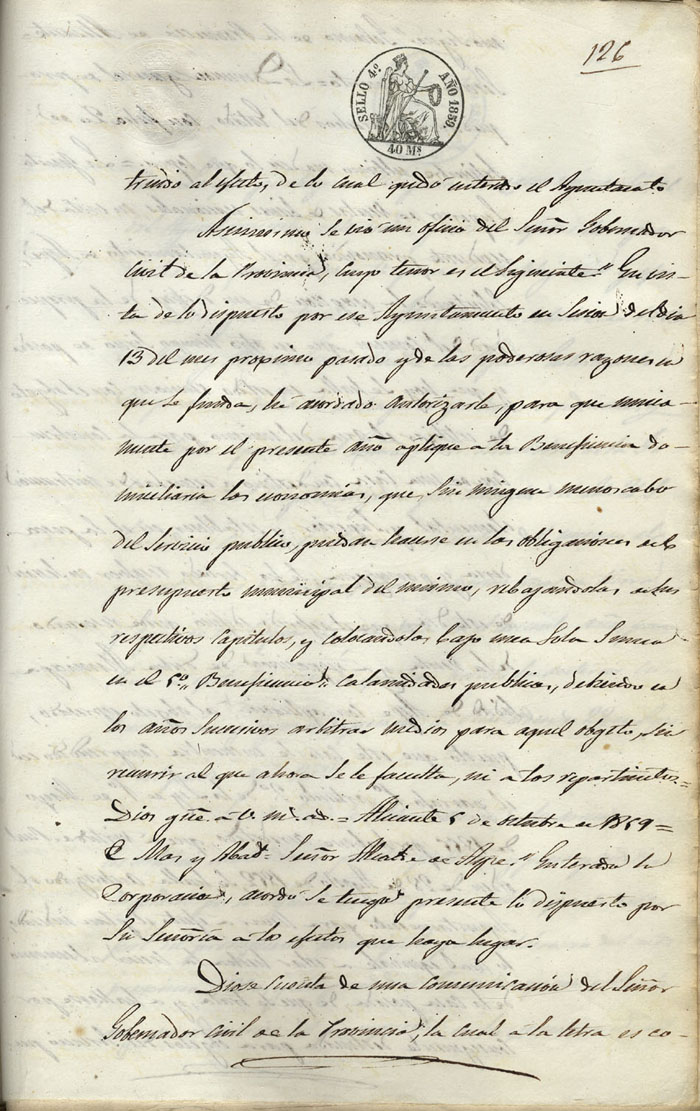 126
SELLO 4º AÑO 1859.
40 Ms
truido al efecto, de lo cual quedó enterado el Ayuntamiento
Asimismo se vio un oficio del Señor Gobernador
Civil de la Provincia, cuyo tenor es el siguiente " En vis-
ta de lo dispuesto por ese Ayuntamiento en sesion del dia
13 del mes proximo pasado y de las poderosas razones en
que se funda, he acordado autorizarle, para que unica-
mente por el presente año aplique a la Beneficencia do-
miciliaria las economias, que sin ninguna menoscabo
del servicio publico, puedan hacerse en las obligaciones del
presupuesto municipal del mismo, rebajandolas de sus
respectivos capitulos, y colocandolas bajo una sola
en el 5º, Beneficencia. calamidades publicas, debiendo en
los años sucesivos arbitrar medios para aquel objeto, sin
recurrir al que ahora se le faculta, ni a los
Dios gue. a V. m. ad. = Alicante 5 de octubre de 1859 =
Mas y Abad = Señor Alcalde de Aspe " Enterada la
Corporacion, acordó se tenga presente lo dispuesto por
Su Señoria a los efectos que haya lugar.
Diose cuenta de una comunicacion del Señor
Gobernador Civil de la Provincia, la cual a la letra es co-